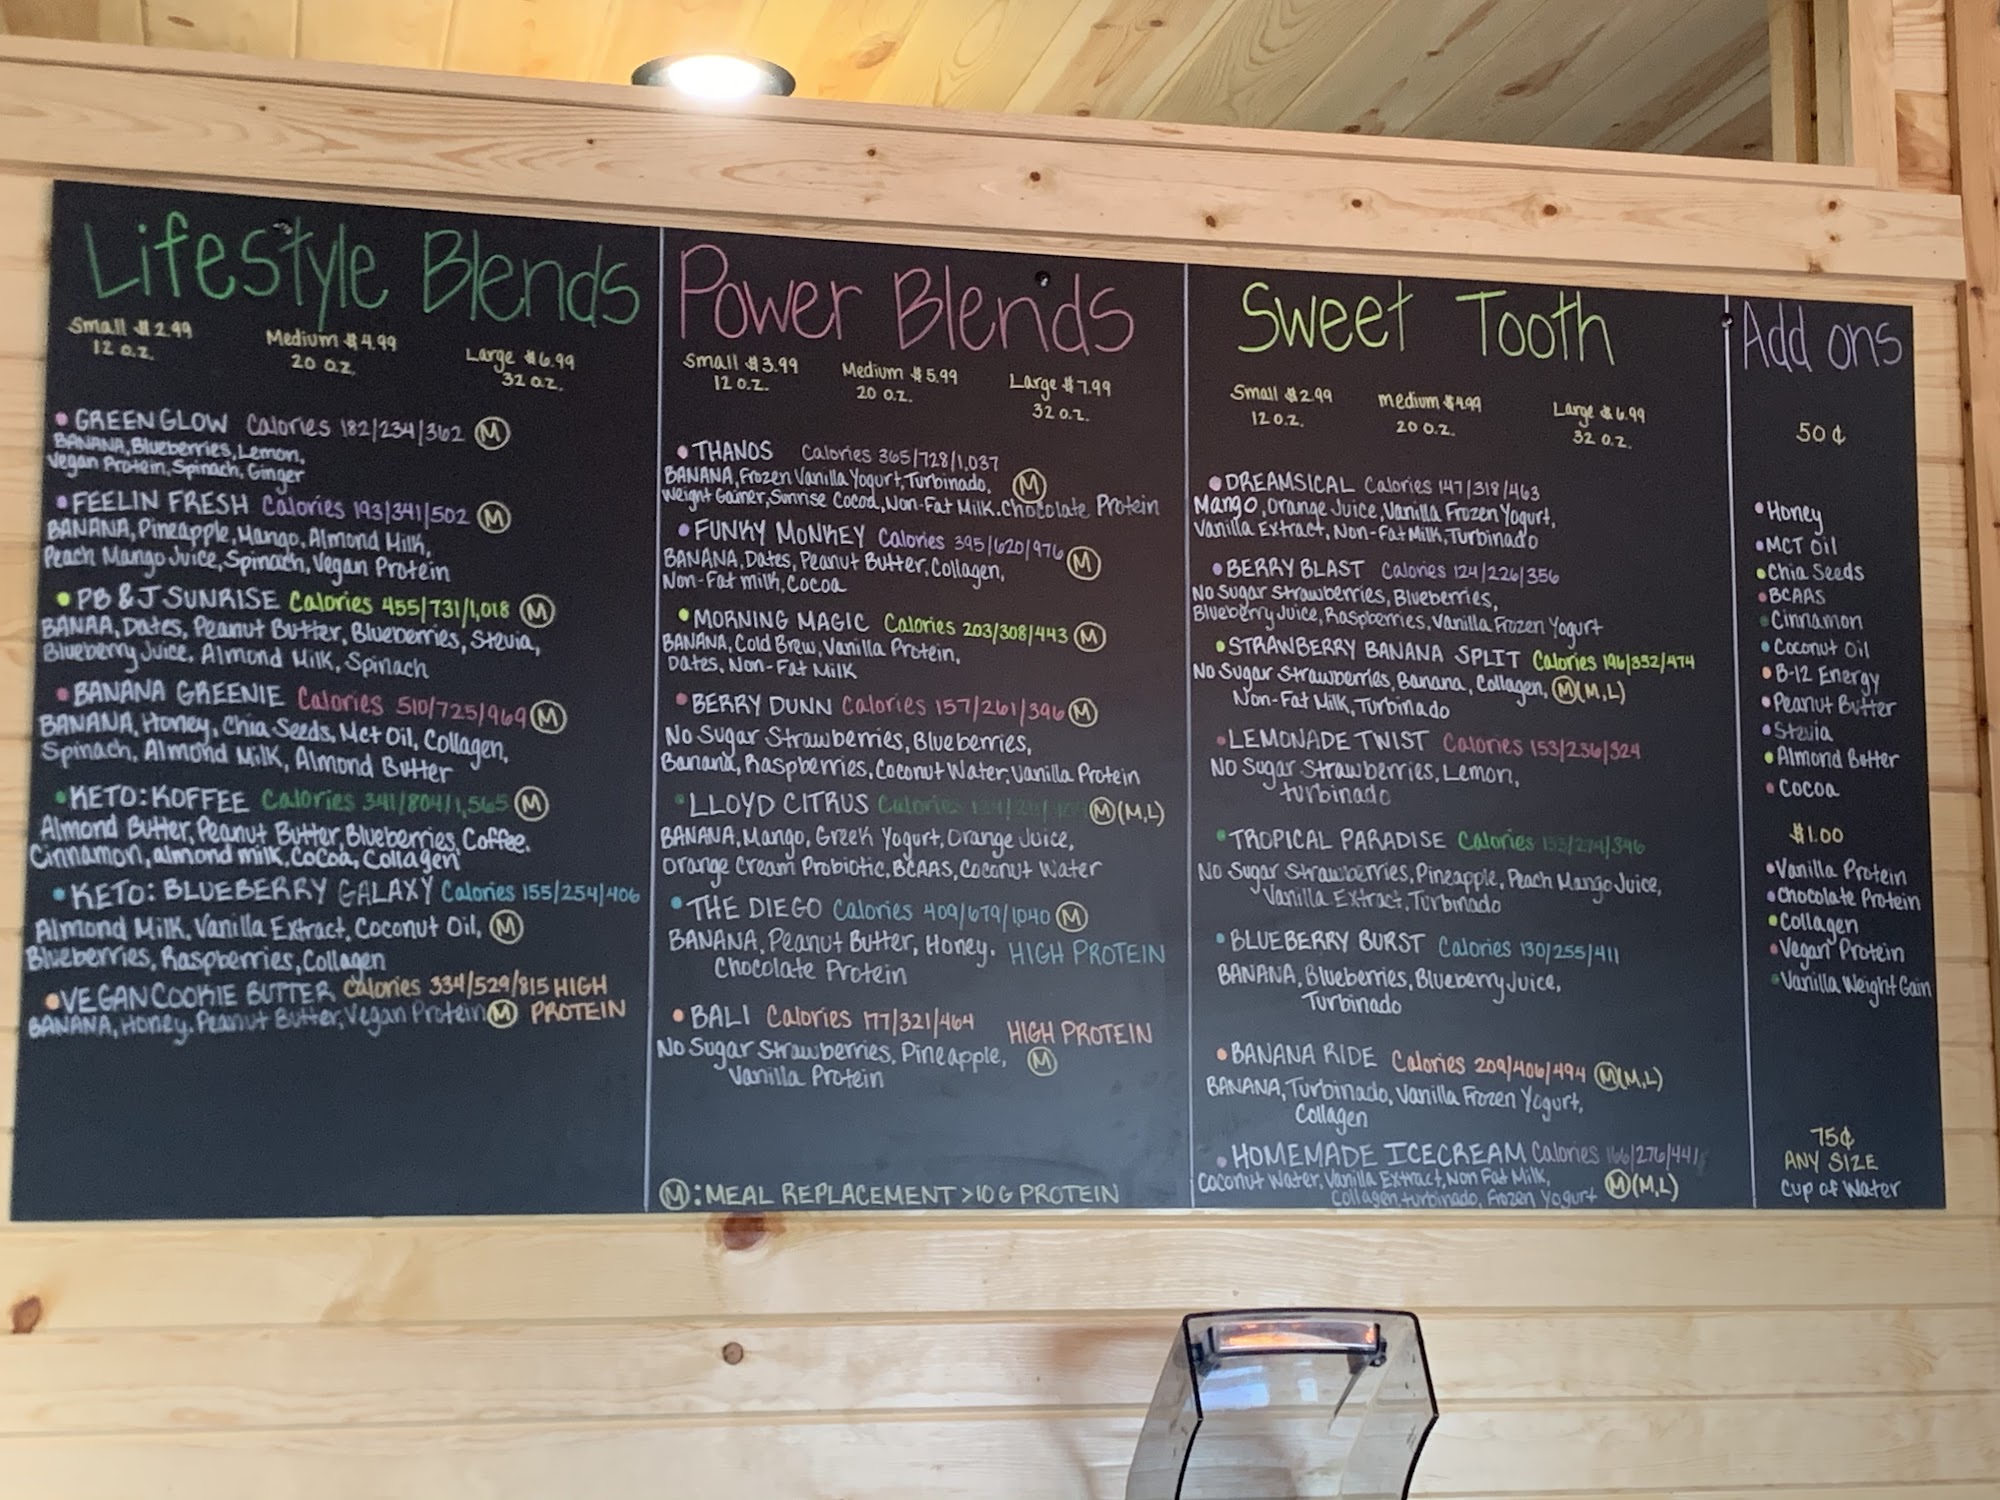 Lifestyle Blends
Small $2.99 Medium $4.99 Large $6.99
12 O.Z. 20 O.Z. 32 O.Z.
• GREEN GLOW Calories 182/234/362 M
BANANA, Blueberries, Lemon,
Vegan Protein, Spinach, Ginger
• FEELIN FRESH Calories 193/341/502 M
BANANA, Pineapple, Mango, Almond Milk,
Peach Mango Juice, Spinach, Vegan Protein
• PB & J SUNRISE Calories 455/731/1,018 M
BANAA, Dates, Peanut Butter, Blueberries, Stevia,
Blueberry Juice, Almond Milk, Spinach
• BANANA GREENIE Calories 510/725/969 M
BANANA, Honey, Chia Seeds, Mct Oil, Collagen,
Spinach, Almond Milk, Almond Butter
• KETO: KOFFEE Calories 341/804/1,565 M
Almond Butter, Peanut Butter, Blueberries, Coffee,
Cinnamon, almond milk, Cocoa, Collagen
• KETO: BLUEBERRY GALAXY Calories 155/254/406
Almond Milk, Vanilla Extract, Coconut Oil, M
Blueberries, Raspberries, Collagen
• VEGAN COOKIE BUTTER Calories 334/529/815 HIGH
BANANA, Honey, Peanut Butter, Vegan Protein M PROTEIN
Power Blends
Small $3.99 Medium $5.99 Large $7.99
12 O.Z. 20 O.Z. 32 O.Z.
• THANOS Calories 365/728/1,037
BANANA, Frozen Vanilla Yogurt, Turbinado, M
Weight Gainer, Sunrise Cocoa, Non-Fat Milk. Chocolate Protein
• FUNKY MONKEY Calories 395/620/976 M
BANANA, Dates, Peanut Butter, Collagen,
Non-Fat milk, Cocoa
• MORNING MAGIC Calories 203/308/443 M
BANANA, Cold Brew, Vanilla Protein,
Dates, Non-Fat Milk
• BERRY DUNN Calories 157/261/396 M
No Sugar Strawberries, Blueberries,
Banana, Raspberries, Coconut Water, Vanilla Protein
• LLOYD CITRUS Calories M (M,L)
BANANA, Mango, Greek Yogurt, Orange Juice,
Orange Cream Probiotic, BCAAS, Coconut Water
• THE DIEGO Calories 409/679/1,040 M
BANANA, Peanut Butter, Honey, HIGH PROTEIN
Chocolate Protein
• BALI Calories 177/321/464 HIGH PROTEIN
No Sugar Strawberries, Pineapple, M
Vanilla Protein
M: MEAL REPLACEMENT >10 G PROTEIN
Sweet Tooth
Small $2.99 medium $4.99 Large $6.99
12 O.Z. 20 O.Z. 32 O.Z.
• DREAMSICAL Calories 147/318/463
Mango, Orange Juice, Vanilla Frozen Yogurt,
Vanilla Extract, Non-Fat Milk, Turbinado
• BERRY BLAST Calories 124/226/356
No Sugar Strawberries, Blueberries,
Blueberry Juice, Raspberries, Vanilla Frozen Yogurt
• STRAWBERRY BANANA SPLIT Calories 196/352/474
No Sugar Strawberries, Banana, Collagen, M (M,L)
Non-Fat Milk, Turbinado
• LEMONADE TWIST Calories 153/236/324
No Sugar Strawberries, Lemon,
turbinado
• TROPICAL PARADISE Calories 153/274/346
No Sugar Strawberries, Pineapple, Peach Mango Juice,
Vanilla Extract, Turbinado
• BLUEBERRY BURST Calories 130/255/411
BANANA, Blueberries, Blueberry Juice,
Turbinado
• BANANA RIDE Calories 209/406/494 M (M,L)
BANANA, Turbinado, Vanilla Frozen Yogurt,
Collagen
• HOMEMADE ICECREAM Calories 166/276/441
Coconut Water, Vanilla Extract, Non Fat Milk, M (M,L)
Collagen, turbinado, Frozen Yogurt
Add ons
50¢
• Honey
• MCT Oil
• Chia Seeds
• BCAAS
• Cinnamon
• Coconut Oil
• B-12 Energy
• Peanut Butter
• Stevia
• Almond Butter
• Cocoa
$1.00
• Vanilla Protein
• Chocolate Protein
• Collagen
• Vegan Protein
• Vanilla Weight Gain
75¢
ANY SIZE
Cup of Water